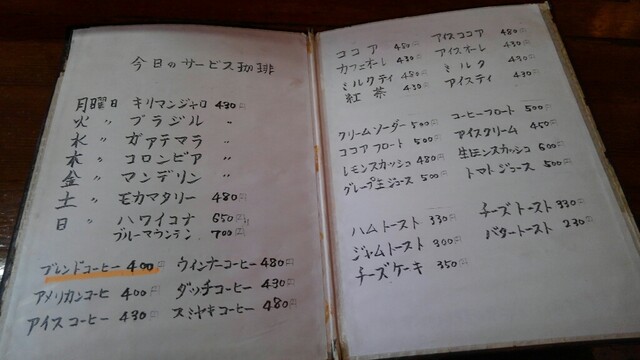 今日のサービス珈琲
月曜日 キリマンジャロ 430円
火 〃 ブラジル 〃
水 〃 ガァテマラ 〃
木 〃 コロンビア 〃
金 〃 マンデリン 〃
土 〃 モカマタリー 480円
日 〃 ハワイコナ 650円
ブルーマウンテン 700円
ブレンドコーヒー 400円 ウィンナーコーヒー 480円
アメリカンコーヒ 400円 ダッチコーヒー 430円
アイスコーヒー 430円 スミヤキコーヒー 480円
ココア 450円 アイスココア 480円
カフェオーレ 430円 アイスオーレ 430円
ミルクティ 480円 ミルク 430円
紅茶 430円 アイスティ 430円
クリームソーダー 500円 コーヒーフロート 500円
ココアフロート 500円 アイスクリーム 450円
レモンスカッシュ 480円 生レモンスカッシュ 600円
グレープ生ジュース 500円 トマトジュース 500円
ハムトースト 330円 チーズトースト 330円
ジャムトースト 300円 バタートースト 230円
チーズケーキ 350円